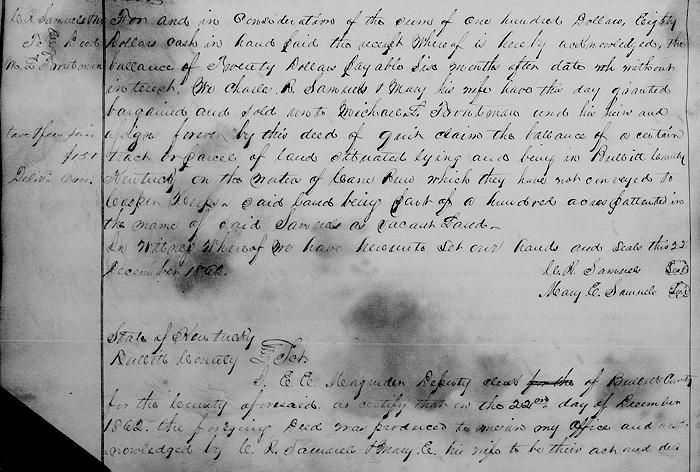 C. R. Samuels &c
To } Deed
M. T. Troutman
For and in Consideration of the sum of one hundred Dollars, Eighty
Dollars cash in hand paid the receipt Whereof is hereby acknowledged, the
ballance of Twenty Dollars payable Six months after date without
interest. We Charles R Samuels & Mary his wife have this day granted
bargained and sold unto Michael T. Troutman and his heirs and
assigns forever by this deed of quit claim the ballance of a certain
tract or parcel of land situated lying and being in Bullitt County
Kentucky on the water of Cane Run which they have not conveyed to
said Land being part of a hundred acres patented in
the name of said Samuels as vacant Land
In Witness Whereof We have hereunto Set our hands and Seals this 22
December 1862.
C. R. Samuels Seal
Mary E. Samuels Seal
State of Kentucky
Bullitt County } Sct
I, Magruder Deputy clerk of Bullitt County
for the County aforesaid do certify that on the 22nd day of December
1862 the foregoing Deed was produced to me in my office and ack
nowledged by C. R. Samuels & Mary E. his wife to be their act and deed